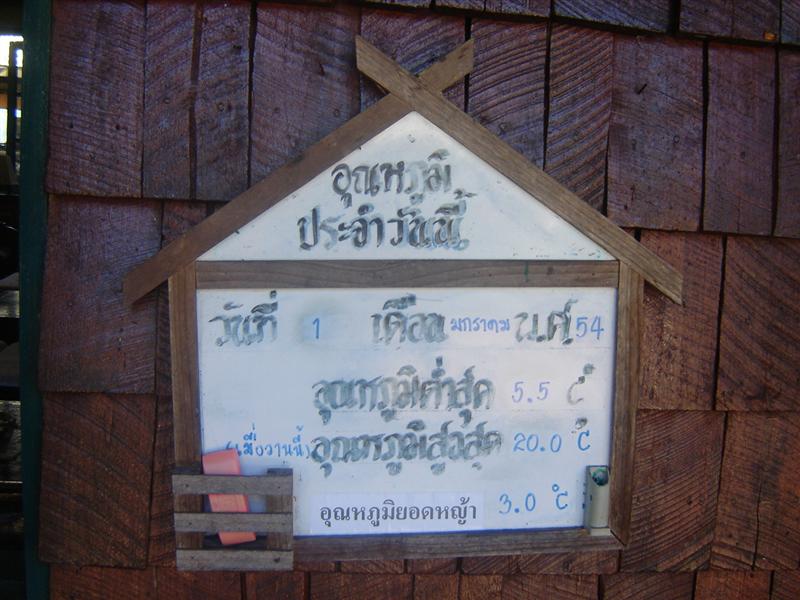 อุณหภูมิ
ประจำวันนี้
วันที่ 1 เดือน มกราคม พ.ศ. 54
อุณหภูมิต่ำสุด 5.5 °C
(เมื่อวานนี้) อุณหภูมิสูงสุด 20.0 °C
อุณหภูมิยอดหญ้า 3.0 °C